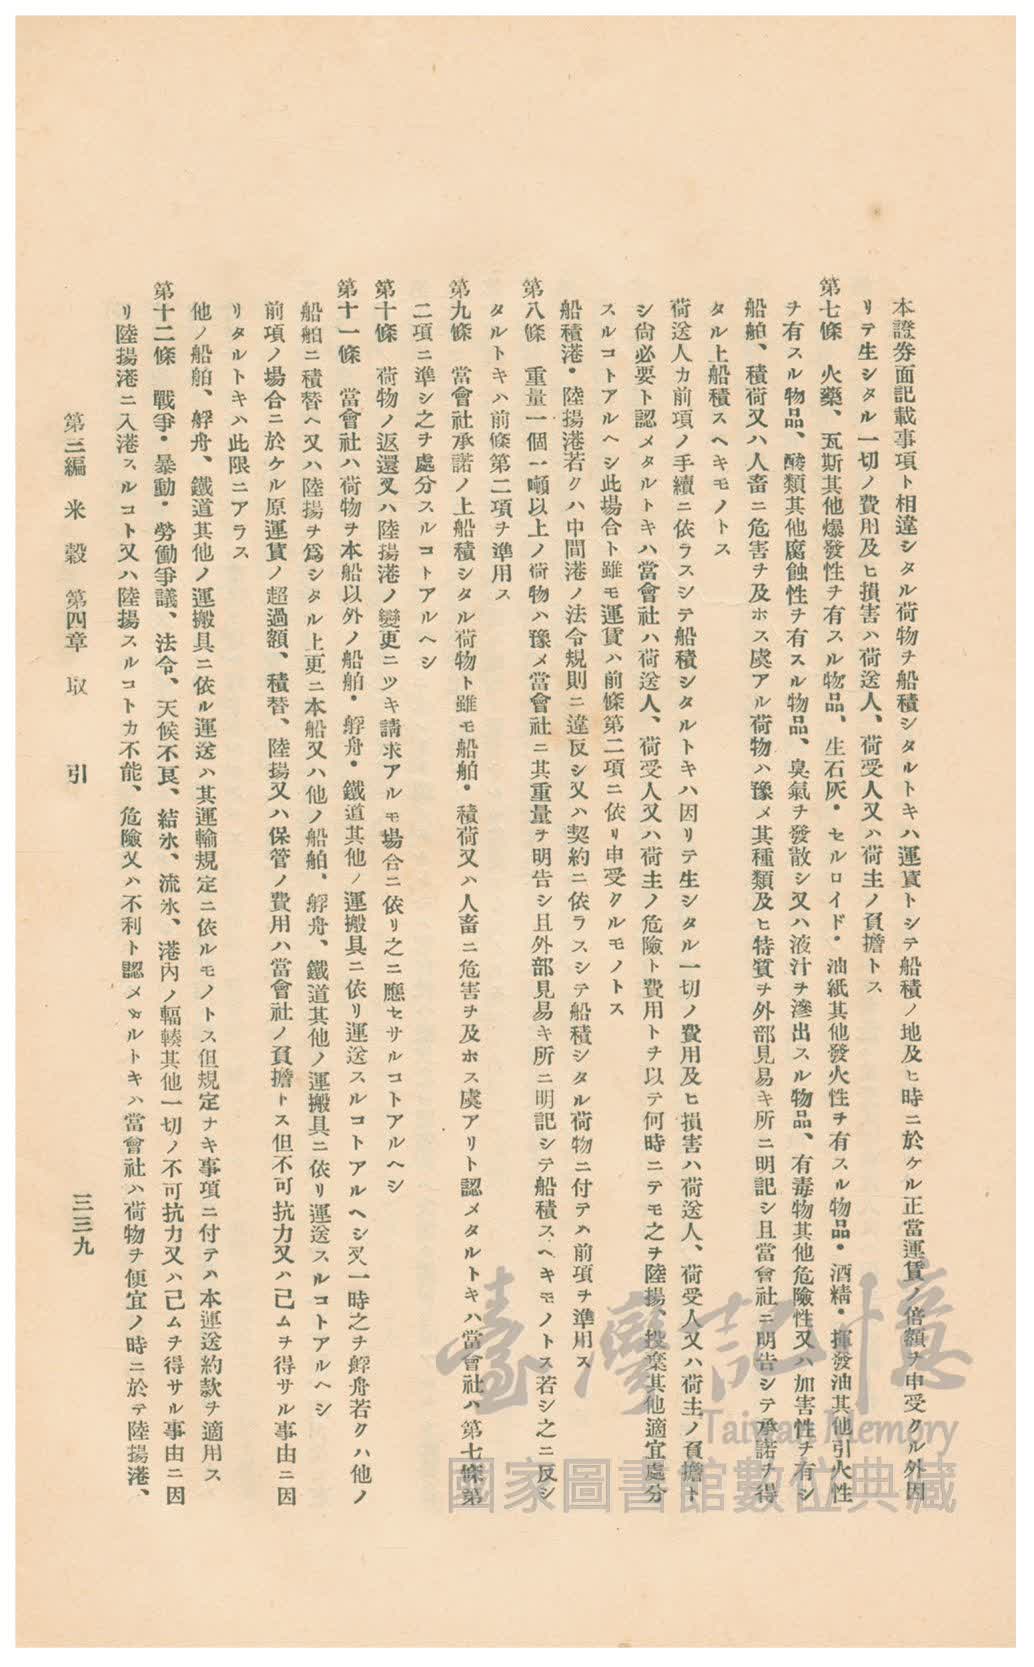 本證券面記載事項ト相違シタル荷物ヲ船積シタルトキハ運賃トシテ船積ノ地及ヒ時ニ於ケル正當運賃ノ倍額ヲ申受クル外因
リテ生シタル一切ノ費用及ヒ損害ハ荷送人、荷受人又ハ荷主ノ負擔トス
第七條　火藥、瓦斯其他爆發性ヲ有スル物品、生石灰・セルロイド・油紙其他發火性ヲ有スル物品・酒精・揮發油其他引火性
ヲ有スル物品、酸類其他腐蝕性ヲ有スル物品、臭氣ヲ發散シ又ハ液汁ヲ滲出スル物品、有毒物其他危險性又ハ加害性ヲ有シ
船舶、積荷又ハ人畜ニ危害ヲ及ホス虞アル荷物ハ豫メ其種類及ヒ特質ヲ外部見易キ所ニ明記シ且當會社ニ明告シテ承諾ヲ得
タル上船積スヘキモノトス
荷送人カ前項ノ手續ニ依ラスシテ船積シタルトキハ因リテ生シタル一切ノ費用及ヒ損害ハ荷送人、荷受人又ハ荷主ノ負擔ト
シ尙必要ト認メタルトキハ當會社ハ荷送人、荷受人又ハ荷主ノ危險ト費用トヲ以テ何時ニテモ之ヲ陸揚、投棄其他適宜處分
スルコトアルヘシ此場合ト雖モ運賃ハ前條第二項ニ依リ申受クルモノトス
船積港・陸揚港若クハ中間港ノ法令規則ニ違反シ又ハ契約ニ依ラスシテ船積シタル荷物ニ付テハ前項ヲ準用ス
第八條　重量一個一噸以上ノ荷物ハ豫メ當會社ニ其重量ヲ明告シ且外部見易キ所ニ明記シテ船積スヘキモノトス若シ之ニ反シ
タルトキハ前條第二項ヲ準用ス
第九條　當會社承諾ノ上船積シタル荷物ト雖モ船舶・積荷又ハ人畜ニ危害ヲ及ホス虞アリト認メタルトキハ當會社ハ第七條第
二項ニ準シ之ヲ處分スルコトアルヘシ
第十條　荷物ノ返還又ハ陸揚港ノ變更ニツキ請求アルモ場合ニ依リ之ニ應セサルコトアルヘシ
第十一條　當會社ハ荷物ヲ本船以外ノ船舶・艀舟・鐵道其他ノ運搬具ニ依リ運送スルコトアルヘシ又一時之ヲ艀舟若クハ他ノ
船舶ニ積替ヘ又ハ陸揚ヲ爲シタル上更ニ本船又ハ他ノ船舶、艀舟、鐵道其他ノ運搬具ニ依リ運送スルコトアルヘシ
前項ノ場合ニ於ケル原運賃ノ超過額、積替、陸揚又ハ保管ノ費用ハ當會社ノ負擔トス但不可抗力又ハ己ムヲ得サル事由ニ因
リタルトキハ此限ニアラス
他ノ船舶、艀舟、鐵道其他ノ運搬具ニ依ル運送ハ其運輸規定ニ依ルモノトス但規定ナキ事項ニ付テハ本運送約款ヲ適用ス
第十二條　戰爭・暴動・勞働爭議、法令、天候不良、結氷、流氷、港內ノ輻輳其他一切ノ不可抗力又ハ己ムヲ得サル事由ニ因
リ陸揚港ニ入港スルコト又ハ陸揚スルコトカ不能、危險又ハ不利ト認メタルトキハ當會社ハ荷物ヲ便宜ノ時ニ於テ陸揚港、
第三編　米穀　第四章　取引
三三九
臺灣記憶
Taiwan Memory
國家圖書館數位典藏